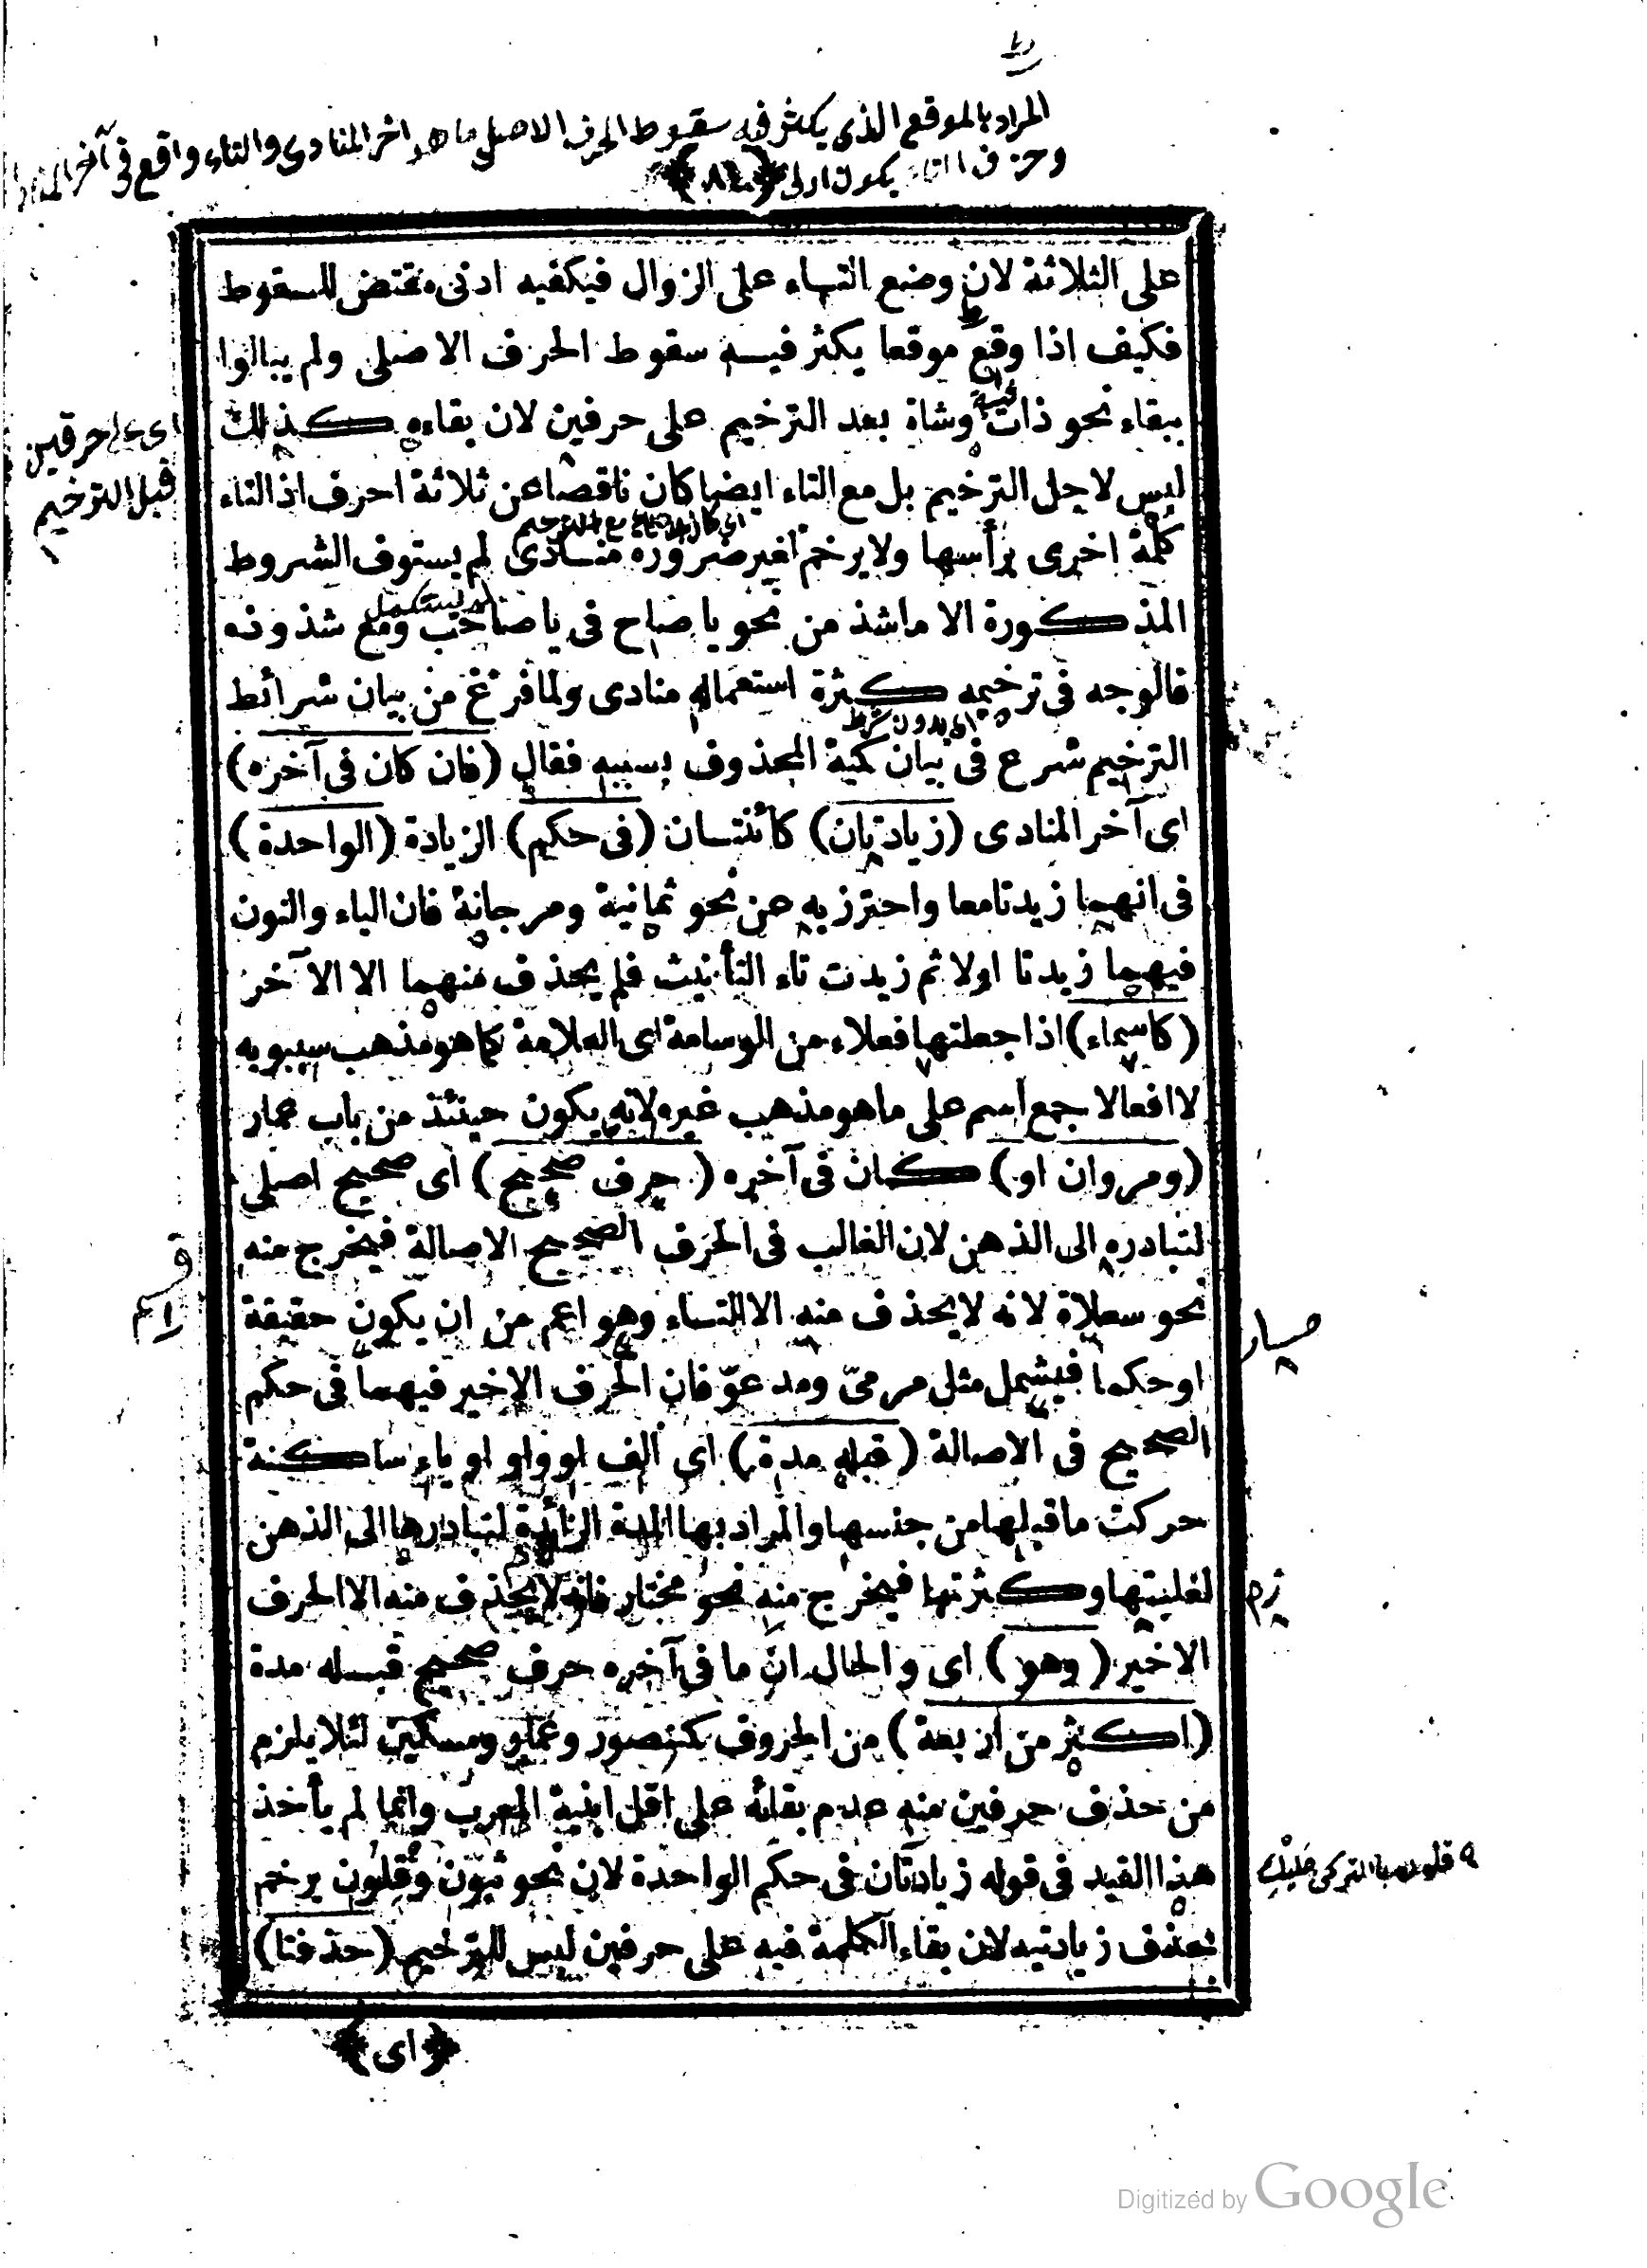 المراد بالموقع الذى يكثر فيه سقوط الحرف الاصلى ما هو اخر المنادى والتاء واقع فى آخر
وحذف التاء يكون اولى
﴿٨٤﴾
على الثلاثة لان وضع التاء على الزوال فيكفيه ادنى مقتض للسقوط
فكيف اذا وقع موقعا يكثر فيه سقوط الحرف الاصلى ولم يبالوا
ببقاء نحو ثبة وشاة بعد الترخيم على حرفين لان بقاءه كذلك
اى على حرفين
قبل الترخيم
ليس لاجل الترخيم بل مع التاء ايضا كان ناقصا عن ثلاثة احرف اذ التاء
كلمة اخرى برأسها ولا يرخم لغير ضرورة منادى لم يستوف الشروط
لم يستكمل
المذكورة الا ما شذ من نحو يا صاح فى يا صاحب ومع شذوذه
فالوجه فى ترخيمه كثرة استعماله منادى ولما فرغ من بيان شرائط
اى بدون شرط
الترخيم شرع فى بيان كمية المحذوف بسببه فقال (فان كان فى آخره)
اى آخر المنادى (زيادتان) كائنتان (فى حكم) الزيادة (الواحدة)
فى انهما زيدتا معا واحترز به عن نحو ثمانية ومرجانة فان الياء والنون
فيهما زيدتا اولا ثم زيدت تاء التأنيث فلم يحذف منهما الا الآخر
(كاسماء) اذا جعلتها فعلاء من الوسامة اى العلامة كما هو مذهب سيبويه
لا افعالا جمع اسم على ما هو مذهب غيره لانه يكون حينئذ من باب عمار
(ومروان او) كان فى آخره (حرف صحيح) اى صحيح اصلى
لتبادره الى الذهن لان الغالب فى الحرف الصحيح الاصالة فيخرج منه
نحو سعلاة لانه لا يحذف منه الا التاء وهو اعم من ان يكون حقيقة
او حكما فيشمل مثل مرمىّ ومدعوّ فان الحرف الاخير فيهما فى حكم
الصحيح فى الاصالة (قبله مدة) اى الف او واو او ياء ساكنة
حركت ما قبلها من جنسها والمراد بها المدة الزائدة لتبادرها الى الذهن
لغلبتها وكثرتها فيخرج منه نحو مختار فانه لا يحذف منه الا الحرف
الاخير (وهو) اى والحال ان ما فى آخره حرف صحيح قبله مدة
(اكثر من اربعة) من الحروف كمنصور وعمار ومسكين لئلا يلزم
من حذف حرفين منه عدم بقائه على اقل ابنية المعرب وانما لم يأخذ
هذا القيد فى قوله زيادتان فى حكم الواحدة لان نحو ثبون وقلون يرخم
بحذف زيادتيه لان بقاء الكلمة فيه على حرفين ليس للترخيم (حذفتا)
﴿اى﴾
Digitized by Google